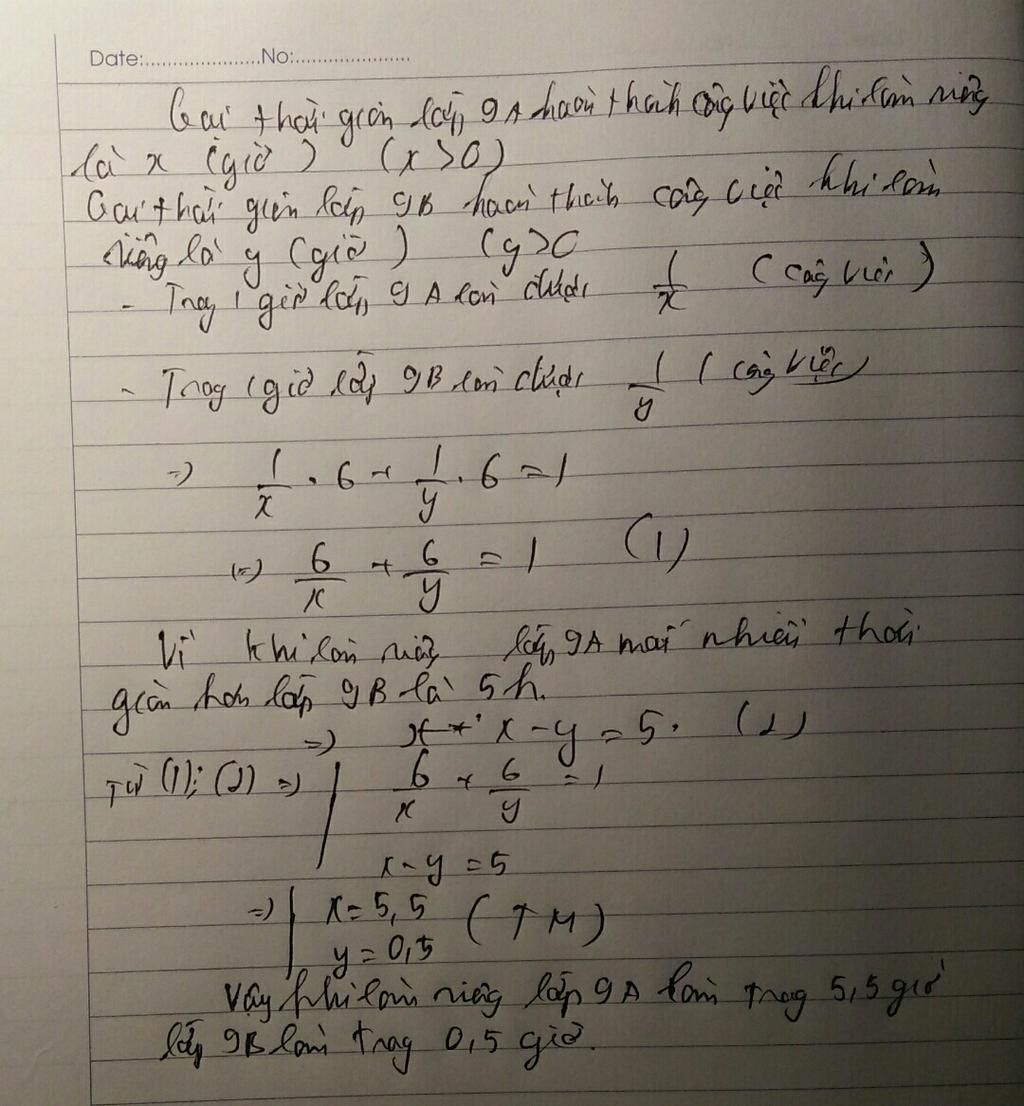 Date:.....................No:.....................
Gọi thời gian lớp 9A hoàn thành công việc khi làm riêng
là x (giờ) (x>0)
Gọi thời gian lớp 9B hoàn thành công việc khi làm
riêng là y (giờ) (y>0
- Trong 1 giờ lớp 9A làm được 1/x (công việc)
- Trong 1 giờ lớp 9B làm được 1/y (công việc)
=> 1/x . 6 + 1/y . 6 = 1
(=) 6/x + 6/y = 1 (1)
Vì khi làm riêng lớp 9A mất nhiều thời
gian hơn lớp 9B là 5h.
=> x - y = 5. (2)
Từ (1); (2) => 6/x + 6/y = 1
x - y = 5
=> x = 5,5 (TM)
y = 0,5
Vậy khi làm riêng lớp 9A làm trong 5,5 giờ
lớp 9B làm trong 0,5 giờ.